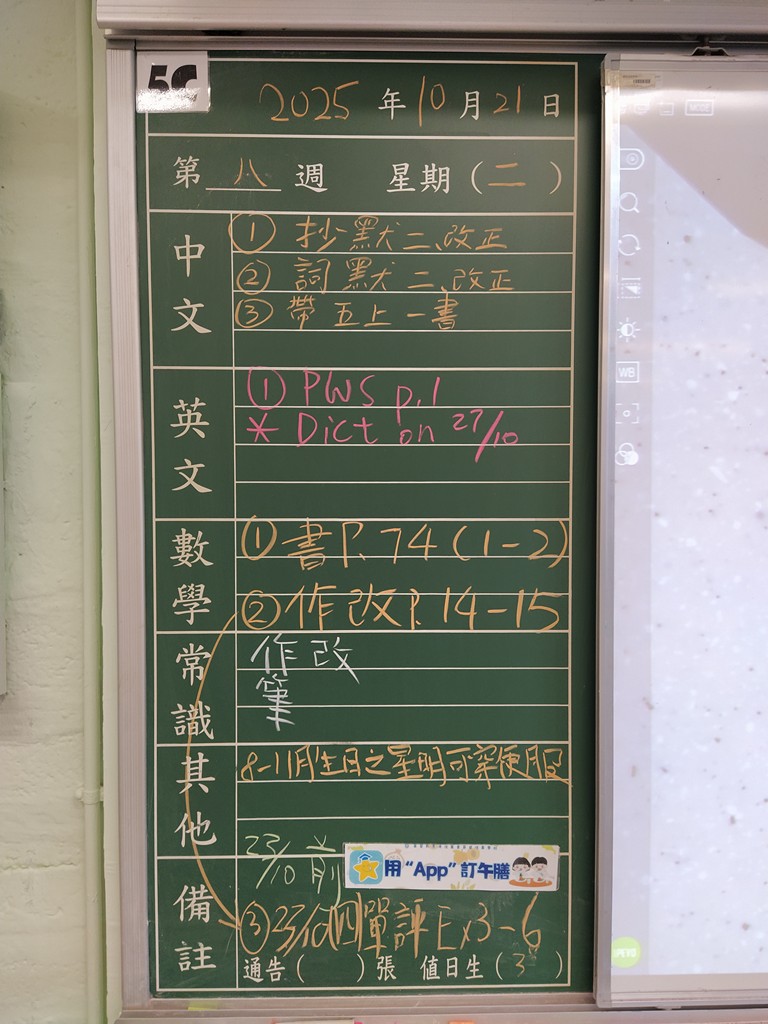 5C
2025年10月21日
第八週 星期(二)
中文
① 抄默二、改正
② 詞默二、改正
③ 帶五上一書
英文
① PWS p.1
* Dict on 27/10
數學
① 書P.74(1-2)
② 作改P.14-15
常識
作改
筆
其他
8-11月生日之星明可穿便服
23/10前
用“App”訂午膳
備註
③ 23/10四單評Ex3-6
通告( )張 值日生(3)
MODE
WB